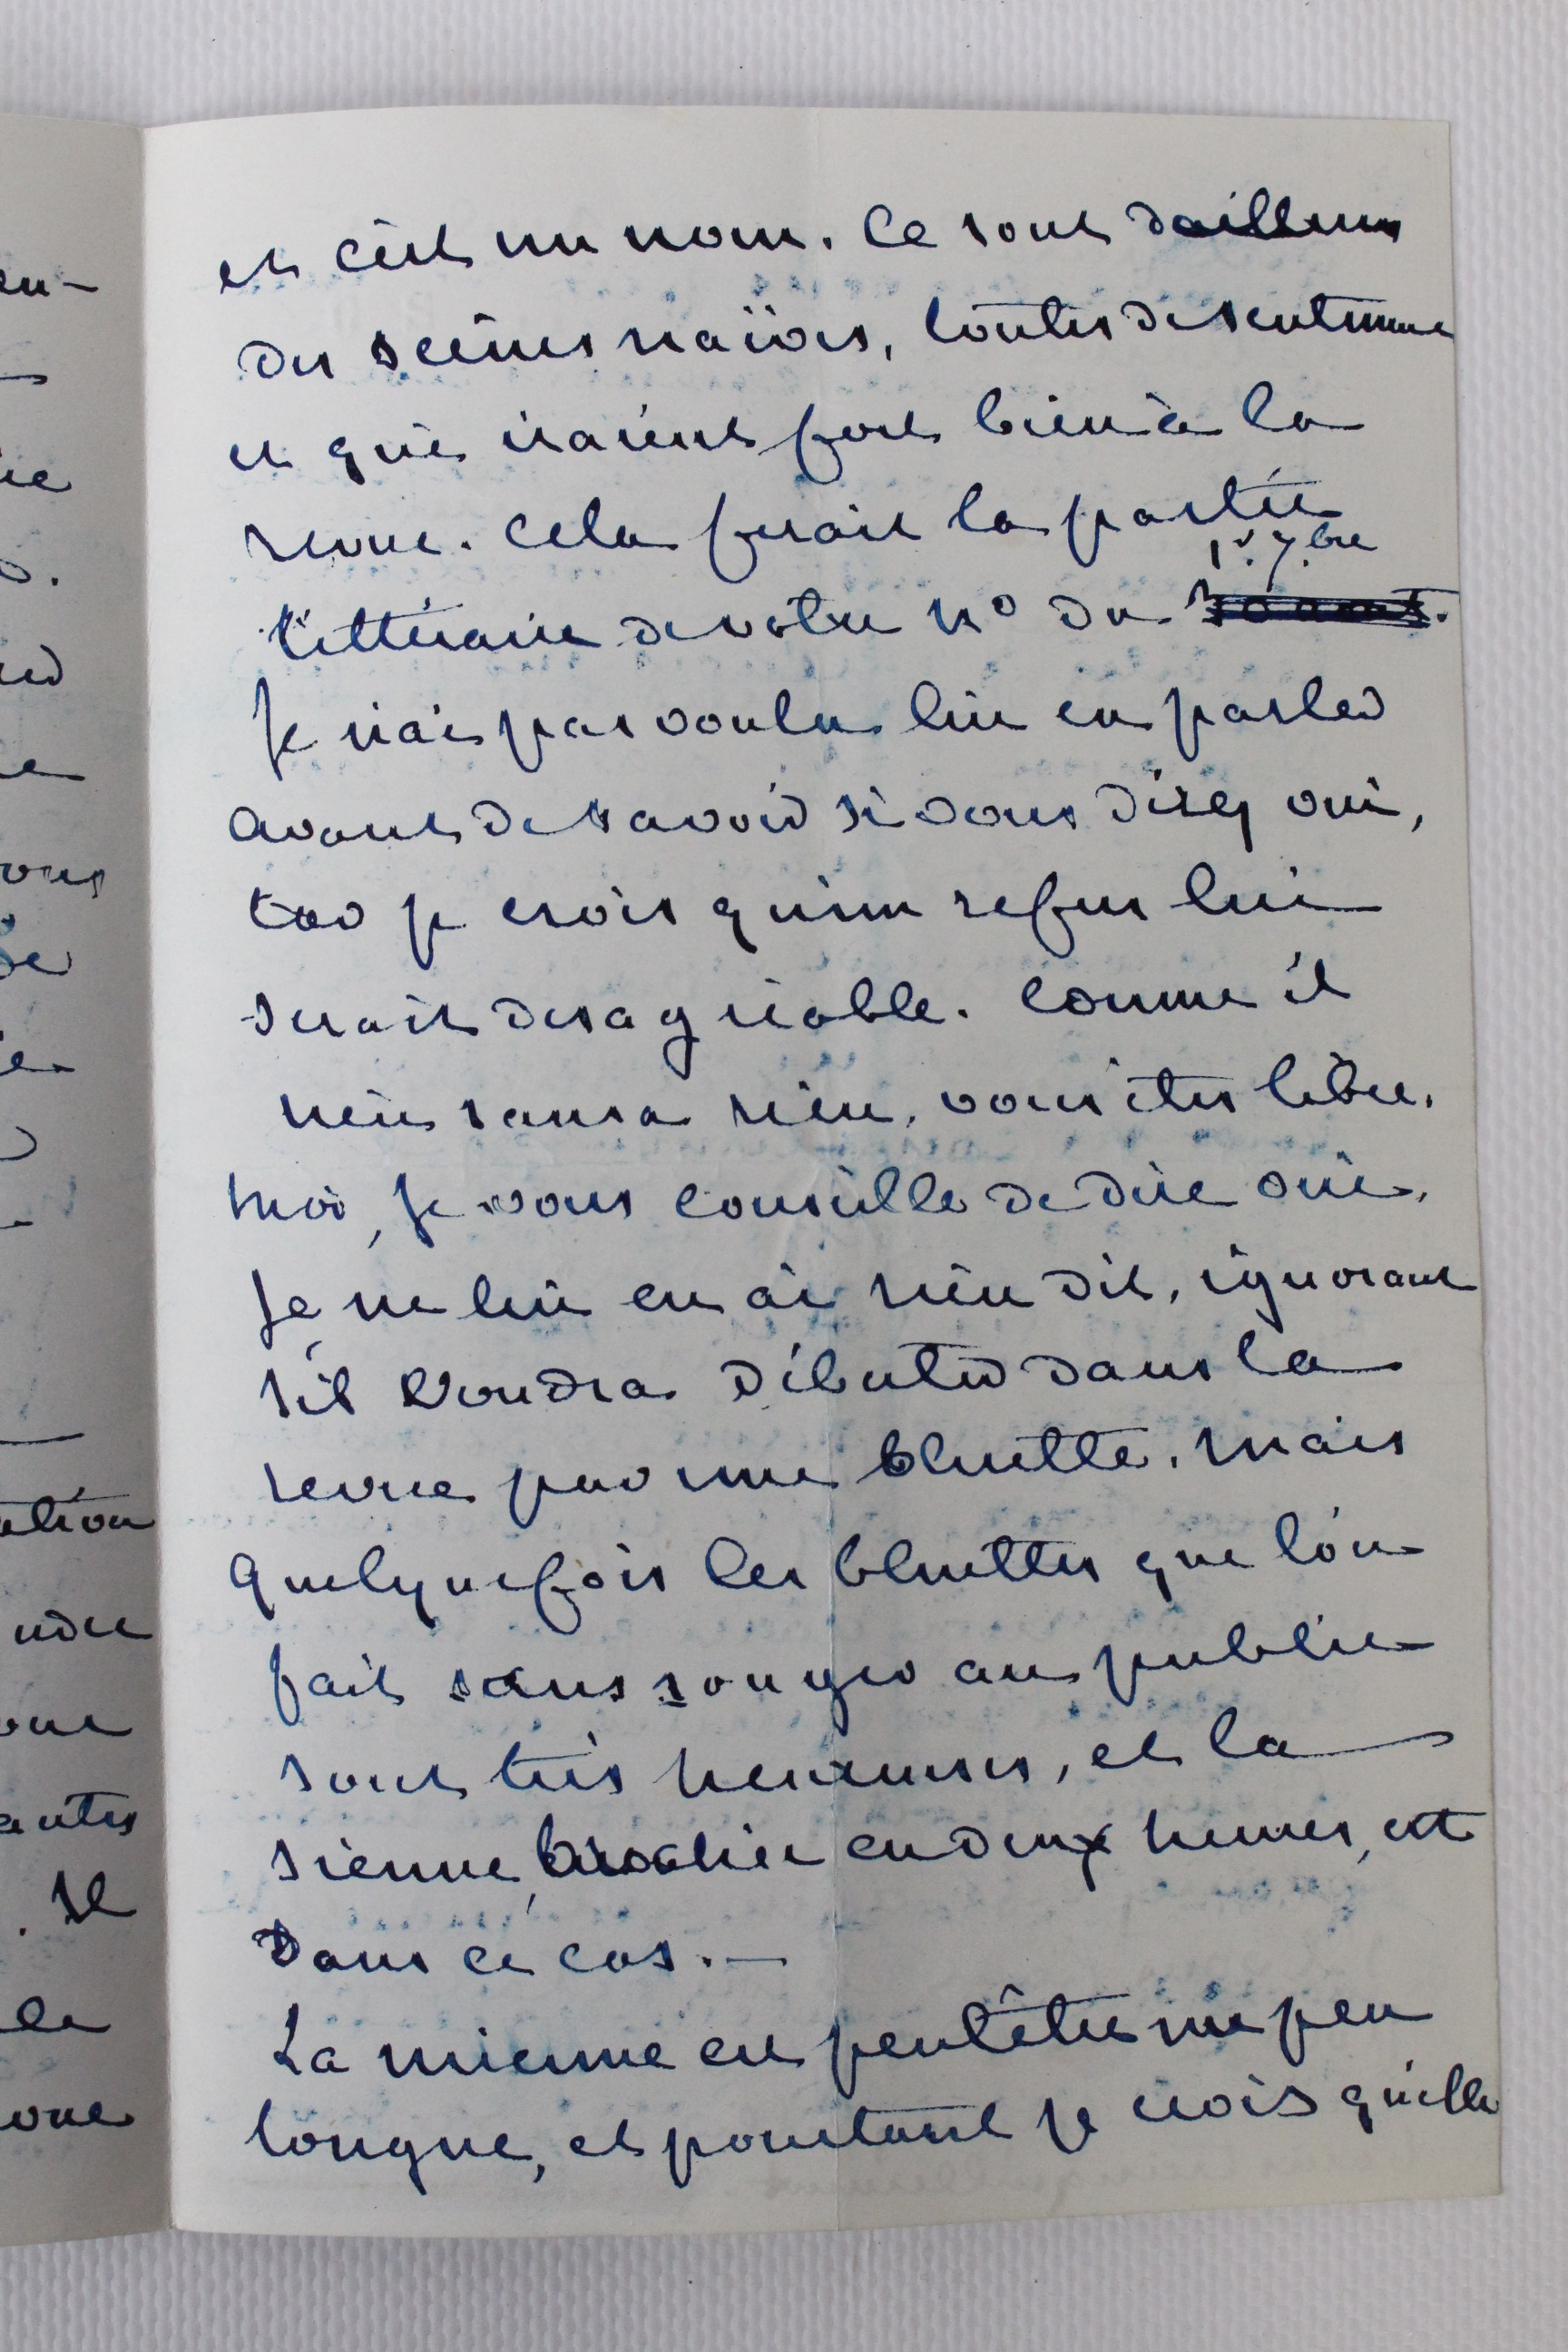 et c'est un nom. Ce sont d'ailleurs
des scènes naïves, toutes de sentiment
et qui iraient fort bien à la
revue. Cela ferait la partie
littéraire de votre no du 1er 7bre
Je n'ai pas voulu lui en parler
avant de savoir si vous direz oui,
car je crois qu'un refus lui
serait desagréable. Comme il
n'en saura rien, vous êtes libre.
Moi, je vous conseille de dire oui.
Je ne lui en ai rien dit, ignorant
s'il voudra débuter dans la
revue par une bluette. Mais
quelquefois les bluettes que l'on
fait sans songer au public
sont très heureuses, et la
sienne, en deux heures, est
dans ce cas. —
La mienne est peut être un peu
longue, et pourtant je crois qu'elle